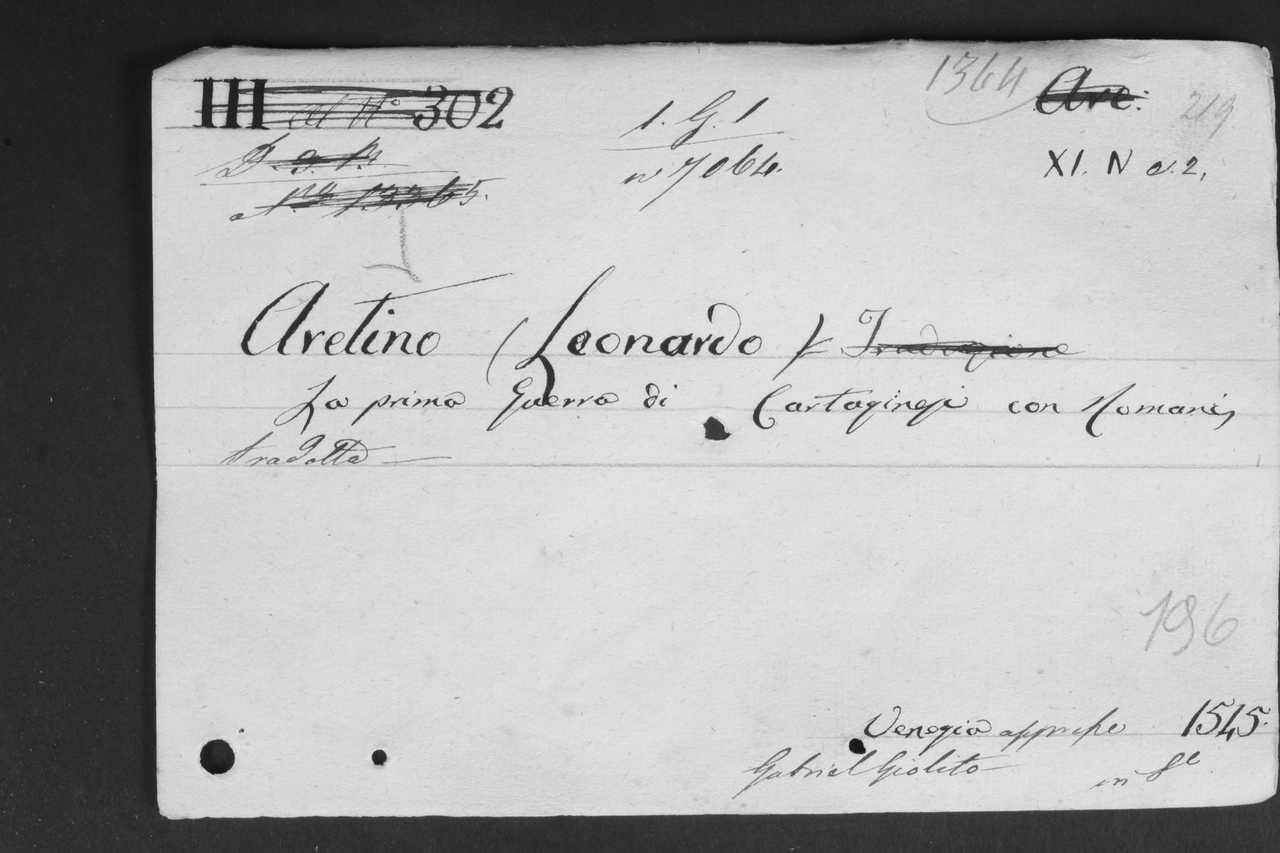 III al N.º 302
1364
Are.
219
1. G. 1
n 7064.
D. a. 14
N.º 13365.
XI. N a. 2,
Aretino (Leonardo) Traduzione
La prima Guerra di Cartaginesi con Romani,
tradotta
196
Venezia appresso 1545.
Gabriel Giolito in 8º